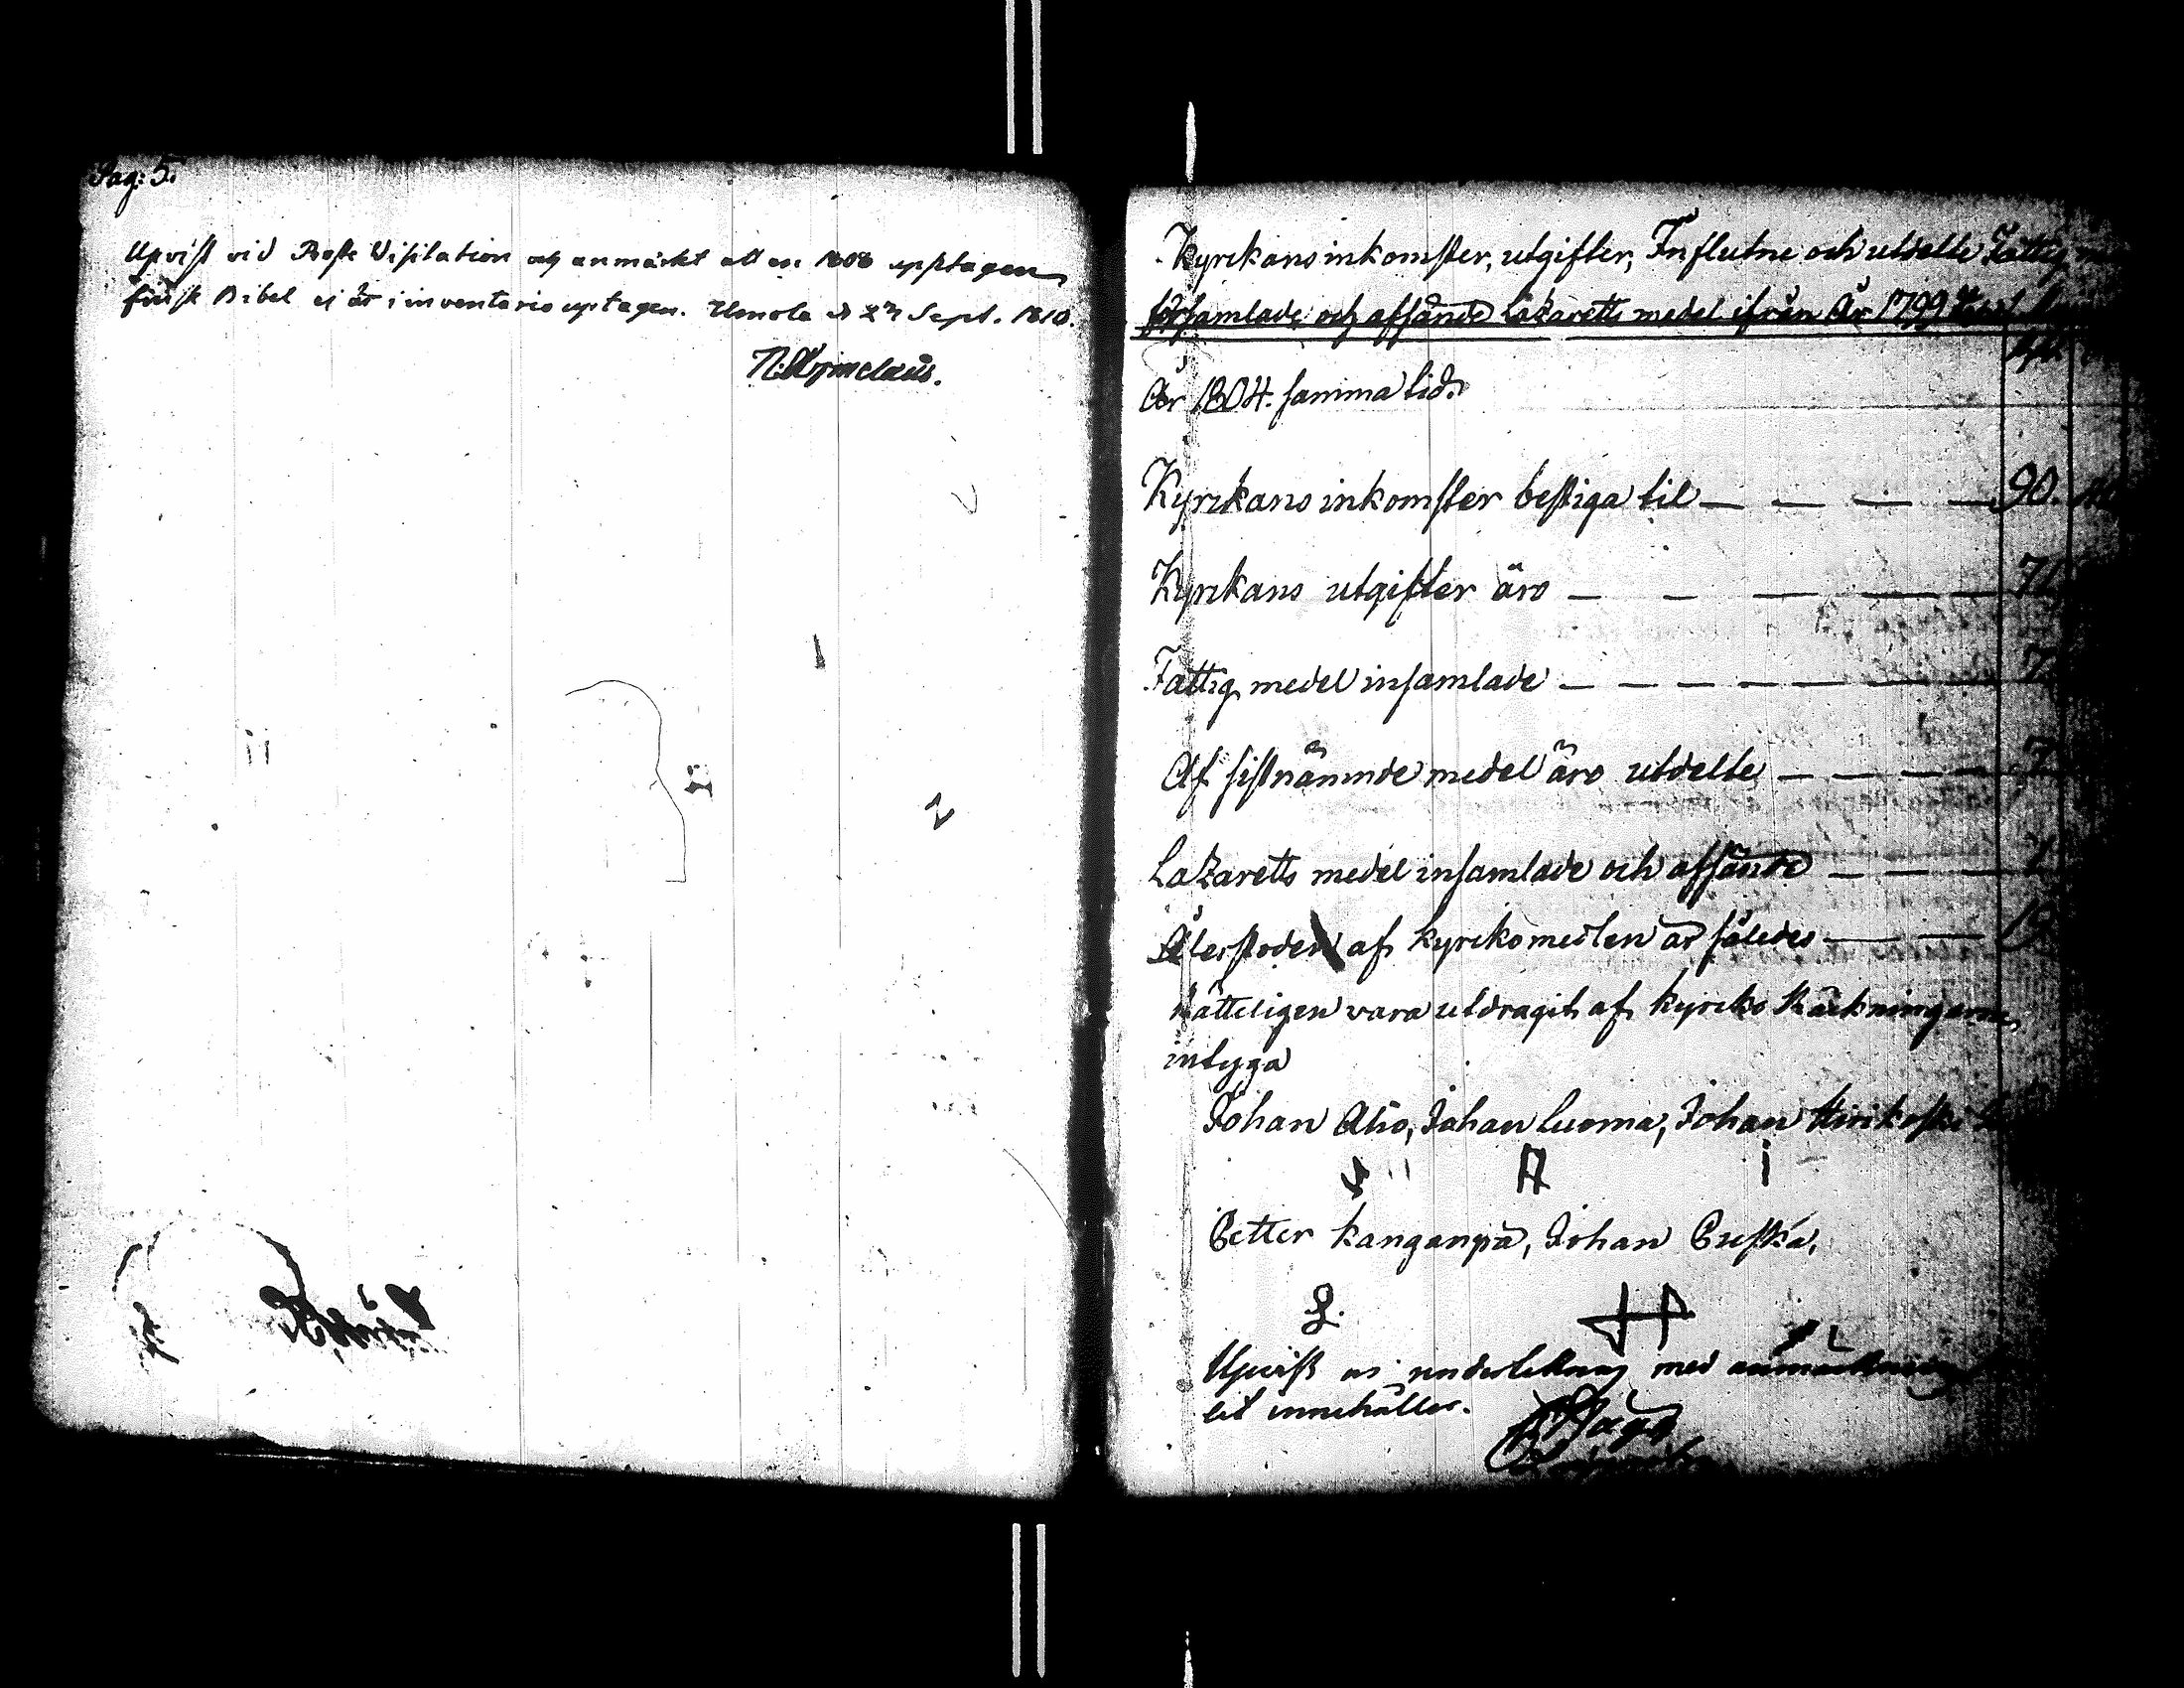 Pag: 5.
Upvist vid Prosts Visitation och anmärkt att en 1808 upptagen
finsk Bibel ej är i inventario uptagen. Ilmola d 27 Sept. 1810.
Kyrckans inkomster, utgifter, Influtne och utdelte Fattig
församlade och afsände Lazaretts medel ifrån År 1799
År 1804. samma tid.
Kyrckans inkomster bestiga til — — — — 90.
Kyrckans utgifter äro — — — — — 71
Fattig medel insamlade — — — — — — — 7
Af sistnämnde medel äro utdelte — — — — 7
Lazaretts medel insamlade och afsände — — —
Återstoden af kyrckomedlen är således — — 19
Rätteligen vara utdragit af kyrcko Räckningarne
intyga
Johan Alio, Johan Luoma, Johan
Petter Kanganpä, Johan Puska,
Upvist med anmärkning
innehåller.